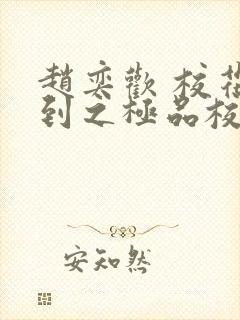 趙奕歡 校花
到之極品校
安知然